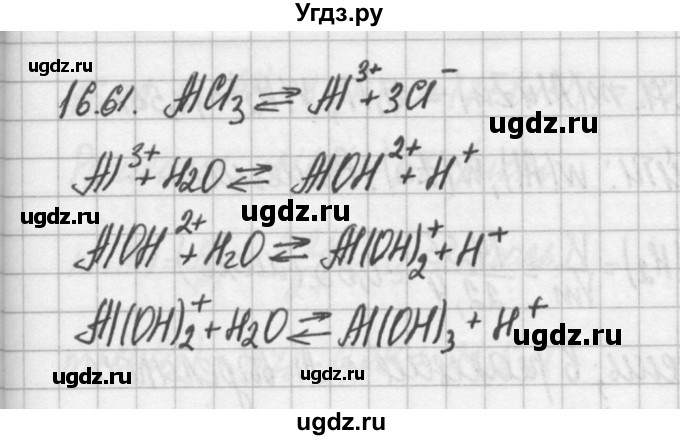 Угдз.ру
ugdz.ru
ugdz.ru
16.61. AlCl₃ ⇄ Al³⁺ + 3Cl⁻
ugdz.ru
Al³⁺ + H2O ⇄ AlOH²⁺ + H⁺
ugdz.ru ugdz.ru
AlOH²⁺ + H₂O ⇄ Al(OH)₂⁺ + H⁺
ugdz.ru
Al(OH)₂⁺ + H2O ⇄ Al(OH)₃ + H⁺
ugdz.ru
ugdz.ru ugdz.ru
ugdz.ru